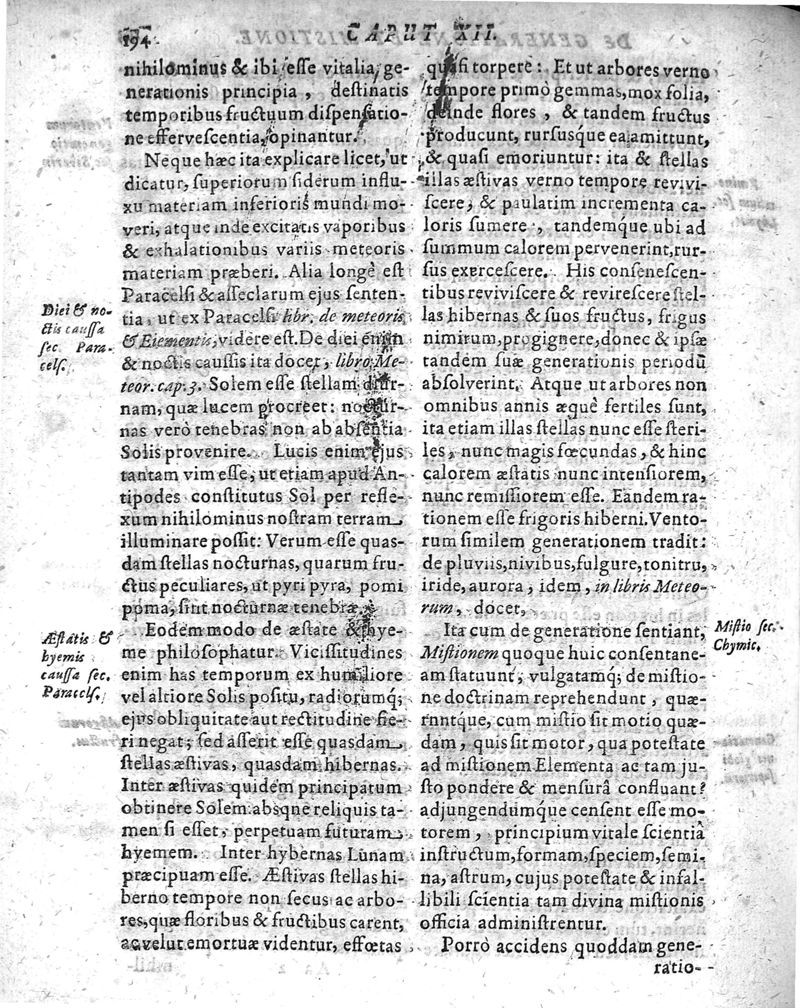 194
CAPUT XII.
nihilominus & ibi eſſe vitalia, ge-
nerationis principia, deſtinatis
temporibus fructuum diſpenſatio-
ne efferveſcentia, opinantur.
Neque hæc ita explicare licet, ut
dicatur, ſuperiorum ſiderum influ-
xu materiam inferioris mundi mo-
veri, atque inde excitatis vaporibus
& exhalationibus variis meteoris
materiam præberi. Alia longè eſt
Paracelſi & aſſeclarum ejus ſenten-
tia, ut ex Paracelſi libr. de meteoris
& Elementis, videre eſt. De diei enim
& noctis cauſſis ita docet, libro Me-
teor. cap. 3. Solem eſſe ſtellam diur-
nam, quæ lucem procreet: noctur-
nas verò tenebras non ab abſentia
Solis provenire. Lucis enim ejus
tantam vim eſſe, ut etiam apud An-
tipodes conſtitutus Sol per refle-
xum nihilominus noſtram terram
illuminare poſſit: Verum eſſe quaſ-
dam ſtellas nocturnas, quarum fru-
ctus peculiares, ut pyri pyra, pomi
poma, ſint nocturnæ tenebræ.
Eodem modo de æſtate & hye-
me philoſophatur. Viciſſitudines
enim has temporum ex humiliore
vel altiore Solis poſitu, radiorumq́;
ejus obliquitate aut rectitudine fie-
ri negat; ſed aſſerit eſſe quasdam
ſtellas æſtivas, quasdam hibernas.
Inter æſtivas quidem principatum
obtinere Solem: absque reliquis ta-
men ſi eſſet, perpetuam futuram
hyemem. Inter hybernas Lunam
præcipuam eſſe. Æſtivas ſtellas hi-
berno tempore non ſecus ac arbo-
res, quæ floribus & fructibus carent,
ac velut emortuæ videntur, effœtas
quaſi torpere: Et ut arbores verno
tempore primò gemmas, mox folia,
deinde flores, & tandem fructus
producunt, rurſusque ea amittunt,
& quaſi emoriuntur: ita & ſtellas
illas æſtivas verno tempore revivi-
ſcere, & paulatim incrementa ca-
loris ſumere, tandemq́ue ubi ad
ſummum calorem pervenerint, rur-
ſus exercеſcere. His conſeneſcen-
tibus reviviſcere & revireſcere ſtel-
las hibernas & ſuos fructus, frigus
nimirum, progignere, donec & ipſæ
tandem ſuæ generationis periodū
abſolverint. Atque ut arbores non
omnibus annis æquè fertiles ſunt,
ita etiam illas ſtellas nunc eſſe ſteri-
les, nunc magis fœcundas, & hinc
calorem æſtatis nunc intenſiorem,
nunc remiſſiorem eſſe. Eandem ra-
tionem eſſe frigoris hiberni. Vento-
rum ſimilem generationem tradit:
de pluviis, nivibus, fulgure, tonitru,
iride, aurora, idem, in libris Meteo-
rum, docet,
Ita cum de generatione ſentiant,
Miſtionem quoque huic conſentane-
am ſtatuunt; vulgatamq́; de miſtio-
ne doctrinam reprehendunt, quæ-
runtque, cum miſtio ſit motio quæ-
dam, quis ſit motor, qua poteſtate
ad miſtionem Elementa ac tam ju-
ſto pondere & menſurâ confluant?
adjungendumq́ue cenſent eſſe mo-
torem, principium vitale ſcientiâ
inſtructum, formam, ſpeciem, ſemi-
na, aſtrum, cujus poteſtate & infal-
libili ſcientia tam divina miſtionis
officia adminiſtrentur.
Porrò accidens quoddam gene-
ratio-
Diei & no-
ctis cauſſa
ſec. Para-
celſ.
Æſtatis &
hyemis
cauſſa ſec.
Paracelſ.
Miſtio ſec.
Chymic.